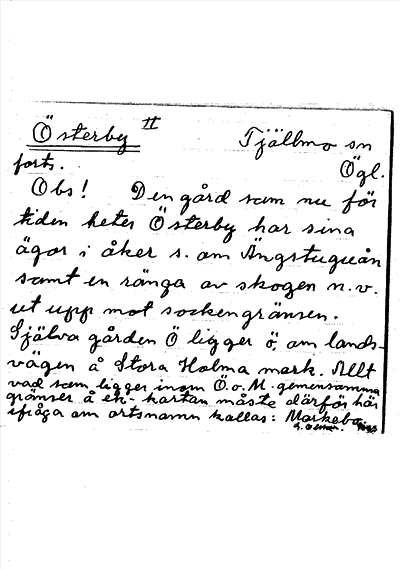 Österby II Tjällmo sn
forts. Ögl.
Obs! Den gård som nu för
tiden heter Österby har sina
ägor i åker s. om Ängstuguån
samt en ränga av skogen n.v.
ut upp mot sockengränsen.
Själva gården Ö ligger ö. om lands-
vägen å Stora Holma mark. Allt
vad som ligger inom Ö. o. M. gemensamma
gränser å ek-kartan måste därför här
ifråga om ortsnamn kallas: Markebo